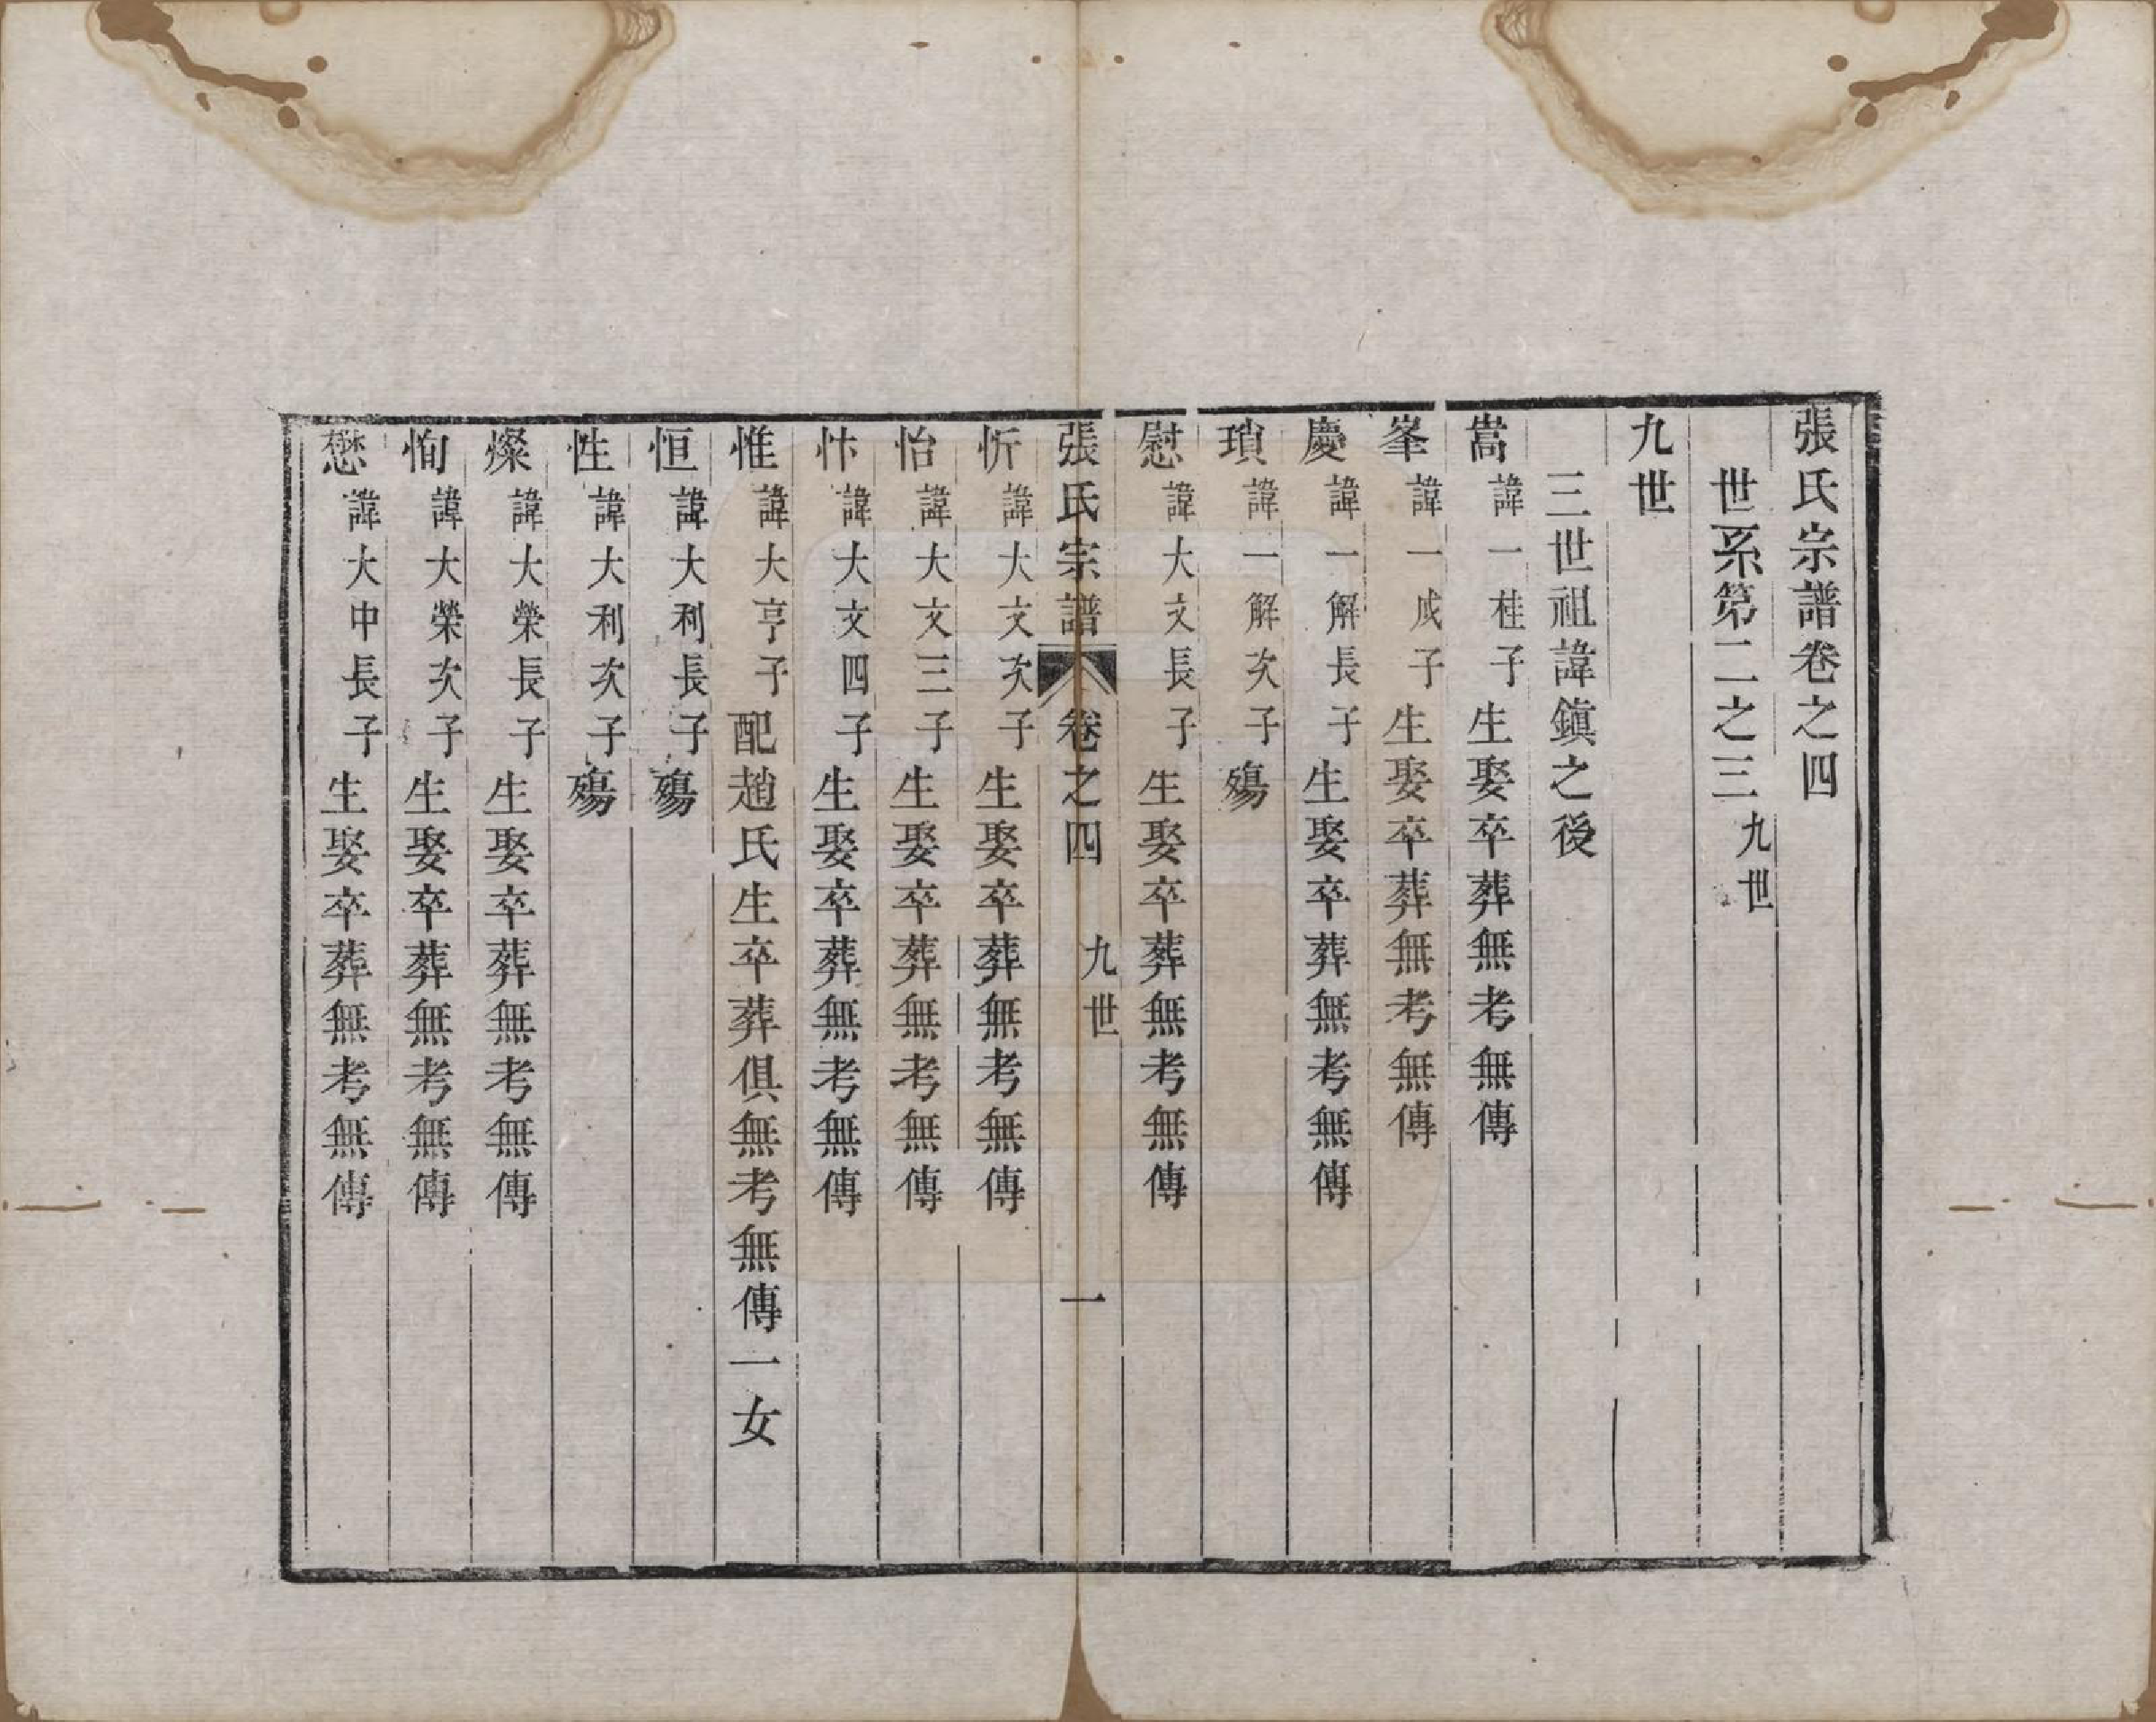 張氏宗譜卷之四
世系第二之三九世
九世
三世祖諱鎭之後
嵩諱一桂子生娶卒葬無考無傳
峯諱一成子生娶卒葬無考無傳
慶諱一解長子生娶卒葬無考無傳
瑣諱一解次子殤
慰諱大文長子生娶卒葬無考無傳
張氏宗譜 卷之四 九世 一
忻諱大文次子生娶卒葬無考無傳
怡諱大文三子生娶卒葬無考無傳
忭諱大文四子生娶卒葬無考無傳
惟諱大亨子配趙氏生卒葬俱無考無傳一女
恒諱大利長子殤
性諱大利次子殤
燦諱大榮長子生娶卒葬無考無傳
恂諱大榮次子生娶卒葬無考無傳
懋諱大中長子生娶卒葬無考無傳